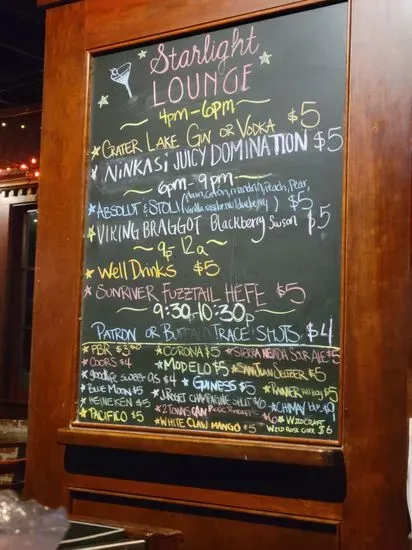 Starlight
LOUNGE
4pm-6pm
CRATER LAKE GIN OR VODKA $5
NINKASI JUICY DOMINATION $5
6pm-9pm
ABSOLUT & STOLI (Plain, Citron, mandrin, Peach, Pear, vanilla, rasberry, blueberry) $5
VIKING BRAGGOT Blackberry $5
9p-12a
Well Drinks $5
SUNRIVER FUZZTAIL HEFE $5
9:30-10:30p
PATRON OR BUFFALO TRACE SHOTS $4
PBR $3.50 CORONA $5 SIERRA NEVADA $5
COORS $4 MODELO $5 SAN JUAN SELTZER $5
goodlife sweet as $4 GUINESS $5 RAINIER tall boy $5
Blue Moon $5 J. ROGET CHAMPAGNE SPLIT $6 CHIMAY blue $9
HEINEKEN $5 2 TOWNS CAN Pacific Pineapple $6 WILDCRAFT
PACIFICO $5 WHITE CLAW MANGO $5 WILD ROSE CIDER $6